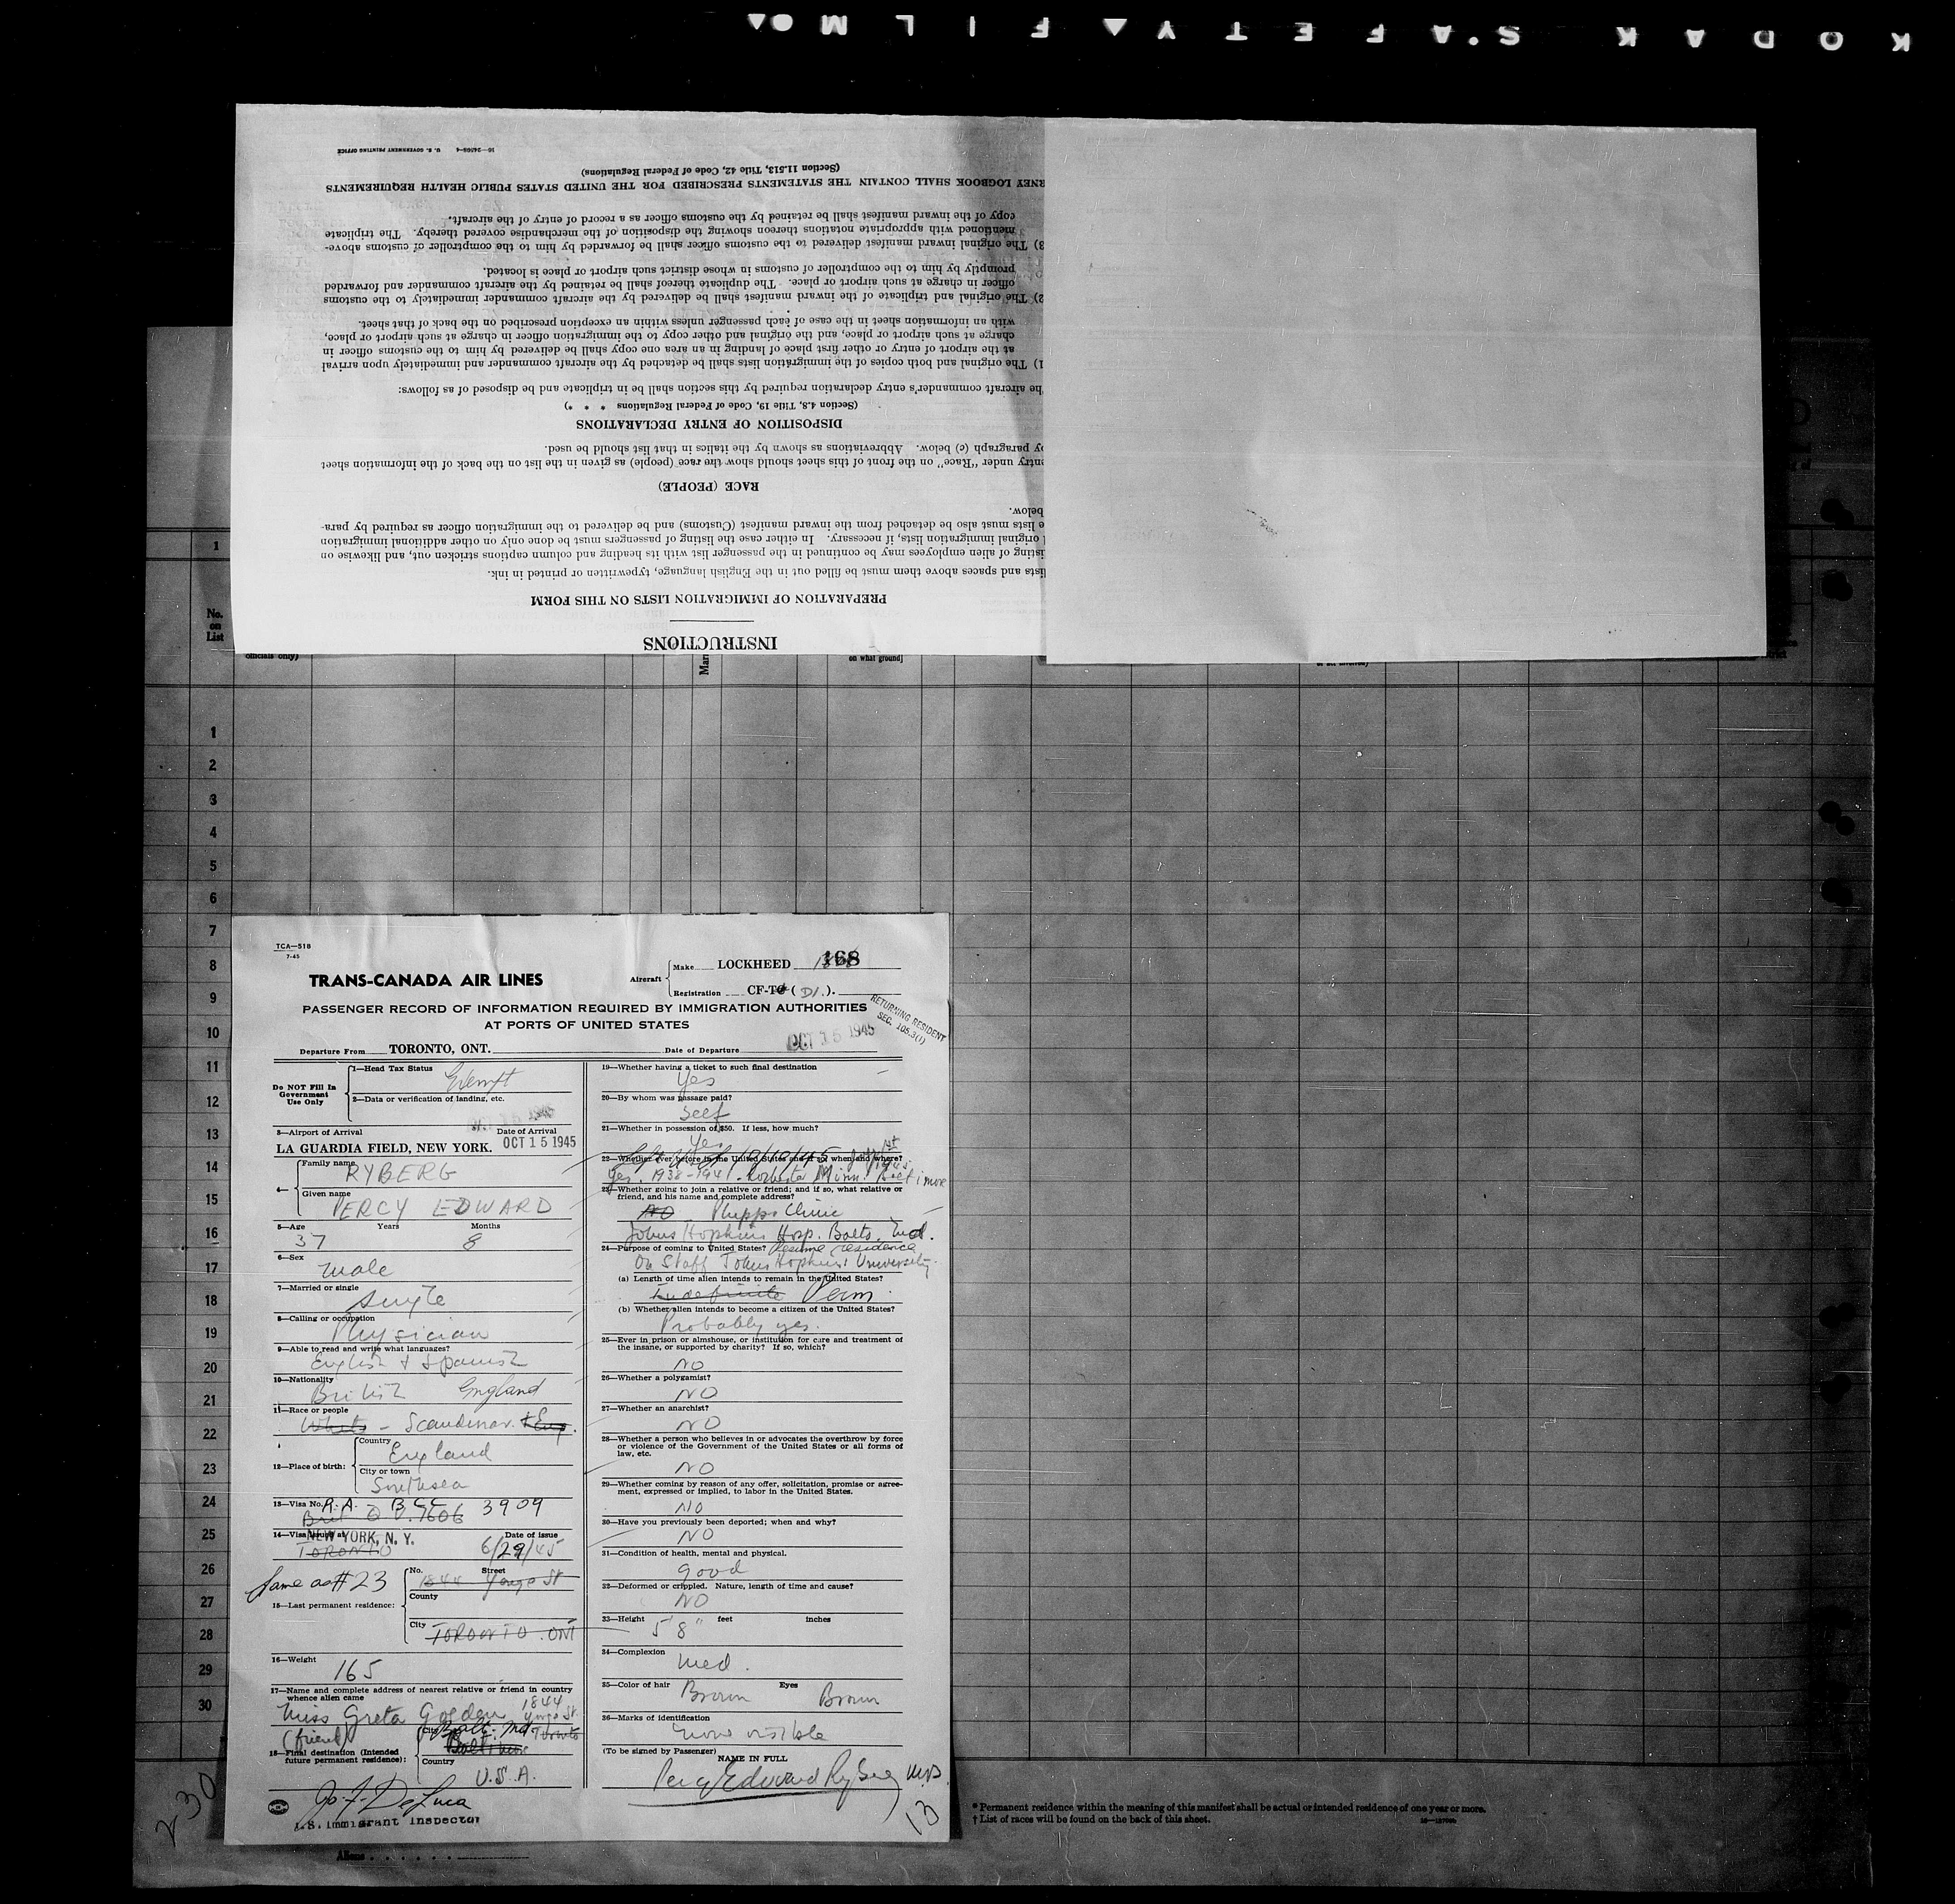 KODAK S.AFETY FILM
16—24568-4 U. S. GOVERNMENT PRINTING OFFICE
(Section 11.513, Title 42, Code of Federal Regulations)
RNEY LOGBOOK SHALL CONTAIN THE STATEMENTS PRESCRIBED FOR THE UNITED STATES PUBLIC HEALTH REQUIREMENTS
copy of the inward manifest shall be retained by the customs officer as a record of entry of the aircraft.
mentioned with appropriate notations thereon showing the disposition of the merchandise covered thereby. The triplicate
3) The original inward manifest delivered to the customs officer shall be forwarded by him to the comptroller of customs above-
promptly by him to the comptroller of customs in whose district such airport or place is located.
officer in charge at such airport or place. The duplicate thereof shall be retained by the aircraft commander and forwarded
2) The original and triplicate of the inward manifest shall be delivered by the aircraft commander immediately to the customs
with an information sheet in the case of each passenger unless within an exception prescribed on the back of that sheet.
charge at such airport or place, and the original and other copy to the immigration officer in charge at such airport or place,
at the airport of entry or other first place of landing in an area one copy shall be delivered by him to the customs officer in
1) The original and both copies of the immigration lists shall be detached by the aircraft commander and immediately upon arrival
he aircraft commander's entry declaration required by this section shall be in triplicate and be disposed of as follows:
(Section 4.5, Title 19, Code of Federal Regulations * * *)
DISPOSITION OF ENTRY DECLARATIONS
by paragraph (c) below. Abbreviations as shown by the italics in that list should be used.
entry under "Race" on the front of this sheet should show the race (people) as given in the list on the back of the information sheet
RACE (PEOPLE)
below.
e lists must also be detached from the inward manifest (Customs) and be delivered to the immigration officer as required by para-
original immigration lists, if necessary. In either case the listing of passengers must be done only on other additional immigration
isting of alien employees may be continued in the passenger list with its heading and column captions stricken out, and likewise on
lists and spaces above them must be filled out in the English language, typewritten or printed in ink.
PREPARATION OF IMMIGRATION LISTS ON THIS FORM
INSTRUCTIONS
1
No. on List
officials only)
Mar
on what ground]
1
2
3
4
5
6
7
8
9
10
11
12
13
14
15
16
17
18
19
20
21
22
23
24
25
26
27
28
29
30
TCA—518
7-45
TRANS-CANADA AIR LINES
Aircraft
Make LOCKHEED 168
Registration CF-TC (D1.).
PASSENGER RECORD OF INFORMATION REQUIRED BY IMMIGRATION AUTHORITIES
AT PORTS OF UNITED STATES
RETURNING RESIDENT
SEC. 105.3(1)
Departure From TORONTO, ONT. Date of Departure OCT 15 1945
Do NOT Fill In
Government
Use Only
1—Head Tax Status
Exempt
2—Data or verification of landing, etc.
3—Airport of Arrival Date of Arrival
LA GUARDIA FIELD, NEW YORK. OCT 15 1945
Family name
RYBERG
4—
Given name
PERCY EDWARD
5—Age Years Months
37 8
6—Sex
Male
7—Married or single
Single
8—Calling or occupation
Physician
9—Able to read and write what languages?
English & Spanish
10—Nationality
British England
11—Race or people
White — Scandinav. & Eng.
12—Place of birth:
Country
England
City or town
Southsea
13—Visa No. R.A. - B.C.C. 3909
Brit Q V. 7606
14—Visa issued at Date of issue
NEW YORK, N. Y.
TORONTO 6/29/45
Same as # 23
No. Street
1844 Yonge St
County
15—Last permanent residence:
City TORONTO. ONT
16—Weight
165
17—Name and complete address of nearest relative or friend in country
whence alien came
Miss Greta Golden 1844 Yonge St.
(friend) Toronto
18—Final destination (Intended
future permanent residence):
City Balt. Md
Baltimore
Country
U.S.A.
Jo. F. DeLuca
U.S. Immigrant Inspector
19—Whether having a ticket to such final destination
Yes
20—By whom was passage paid?
Self
21—Whether in possession of $50. If less, how much?
Yes
22—Whether ever before in the United States and if so, when and where?
10/10/45
Yes. 1938-1941 - Rochester Minn.
23—Whether going to join a relative or friend; and if so, what relative or
friend, and his name and complete address?
NO Phipps Clinic
Johns Hopkins Hosp. Balto. Md.
24—Purpose of coming to United States? Resume residence
On Staff Johns Hopkins University
(a) Length of time alien intends to remain in the United States?
Indefinite Perm.
(b) Whether alien intends to become a citizen of the United States?
Probably yes.
25—Ever in prison or almshouse, or institution for care and treatment of
the insane, or supported by charity? If so, which?
NO
26—Whether a polygamist?
NO
27—Whether an anarchist?
NO
28—Whether a person who believes in or advocates the overthrow by force
or violence of the Government of the United States or all forms of
law, etc.
NO
29—Whether coming by reason of any offer, solicitation, promise or agree-
ment, expressed or implied, to labor in the United States.
NO
30—Have you previously been deported; when and why?
NO
31—Condition of health, mental and physical.
Good
32—Deformed or crippled. Nature, length of time and cause?
NO
33—Height feet inches
5' 8"
34—Complexion
Med.
35—Color of hair Eyes
Brown Brown
36—Marks of identification
none visible
(To be signed by Passenger)
NAME IN FULL
Percy Edward Ryberg M.D.
230
13
* Permanent residence within the meaning of this manifest shall be actual or intended residence of one year or more.
† List of races will be found on the back of this sheet.
Aliens